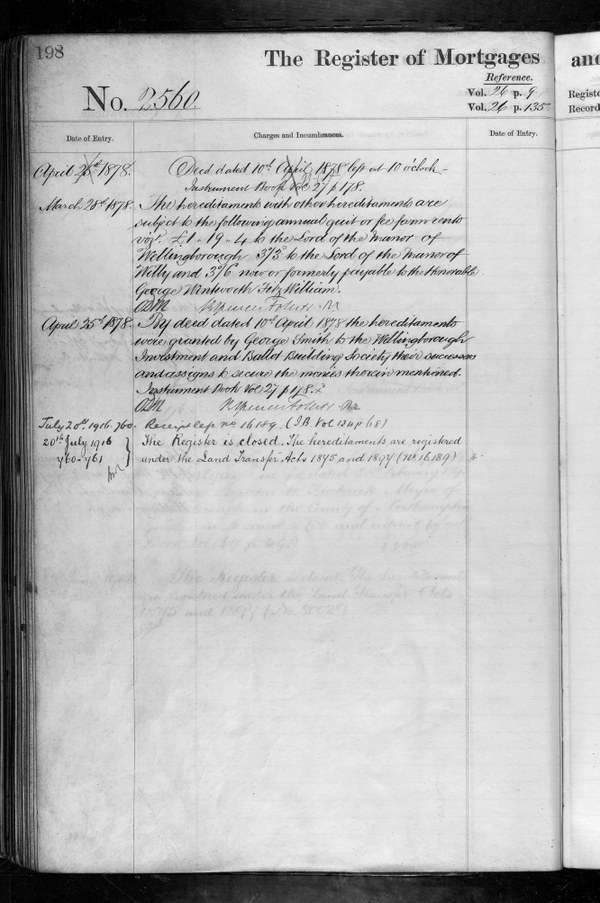 198
The Register of Mortgages
and
Reference.
No. 2560
Vol. 26 p. 9
Vol. 26 p. 135
Date of Entry.
Charges and Incumbrances.
Date of Entry.
April 25th 1878.
Deed dated 10th April 1878 left at 10 o'clock
Instrument Book Vol 27 p 178.
March 28th 1878.
The hereditaments with other hereditaments are
subject to the following annual quit or fee farm rents
viz. £1-19-4 to the Lord of the Manor of
Wellingborough 3/3 to the Lord of the Manor of
and 3/6 now or formerly payable to the Honorable
George Wentworth FitzWilliam.
April 25th 1878.
By deed dated 10th April 1878 the hereditaments
were granted by George Smith to the Wellingborough
Investment and Ballot Building Society their successors
and assigns to secure the monies therein mentioned.
Instrument Book Vol 27 p 178.
July 20th 1916. 760.
Receipt no 16189. (I.B. Vol 124 p 68)
20th July 1916
The Register is closed. The hereditaments are registered
760-761
under the Land Transfer Acts 1875 and 1897 (No 16,189)
The Register is closed. The hereditaments